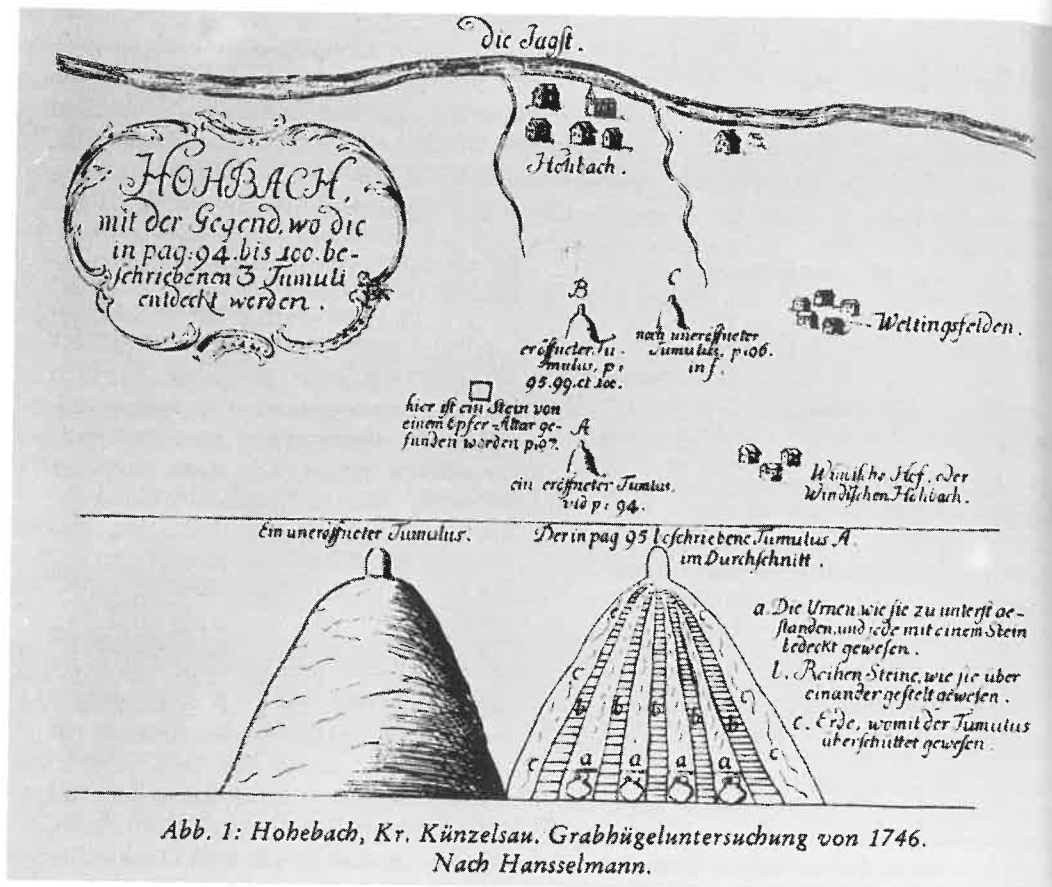 die Jagst.
HOHBACH,
mit der Gegend, wo die
in pag: 94. bis 100. be-
schriebenen 3 Tumuli
entdeckt werden.
Hohbach.
B
eröffneter Tu-
mulus, p:
95. 99. et 100.
C
noch uneröffneter
Tumulus, p: 96.
inf.
Wettingsfelden.
hier ist ein Stein von
einem Opfer-Altar ge-
funden worden p: 97.
A
ein eröffneter Tumulus.
vid p: 94.
Windische Hof, oder
Windischen Hohbach.
Ein uneröffneter Tumulus.
Der in pag 95 beschriebene Tumulus A.
im Durchschnitt.
a. Die Urnen, wie sie zu unterst ge-
standen, und jede mit einem Stein
bedeckt gewesen.
b. Reihen Steine, wie sie über
einander gestelt gewesen.
c. Erde, womit der Tumulus
überschüttet gewesen.
c c
c c
b b b b
c c
a a a a
Abb. 1: Hohebach, Kr. Künzelsau. Grabhügeluntersuchung von 1746.
Nach Hansselmann.